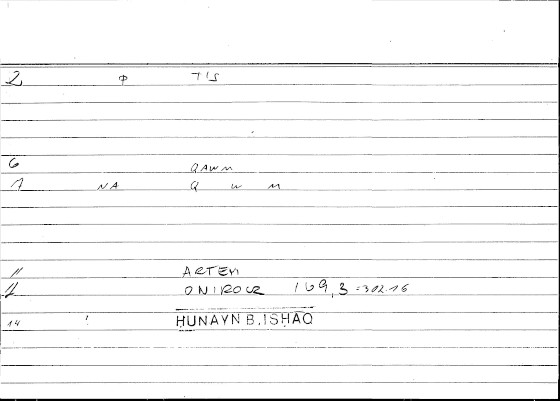 2 φ TIS
6 QAWM
7 NA Q W M
11 ARTEM
12 ONIROCR 169,3 = 302.16
14 ! HUNAYN B. ISḤĀQ